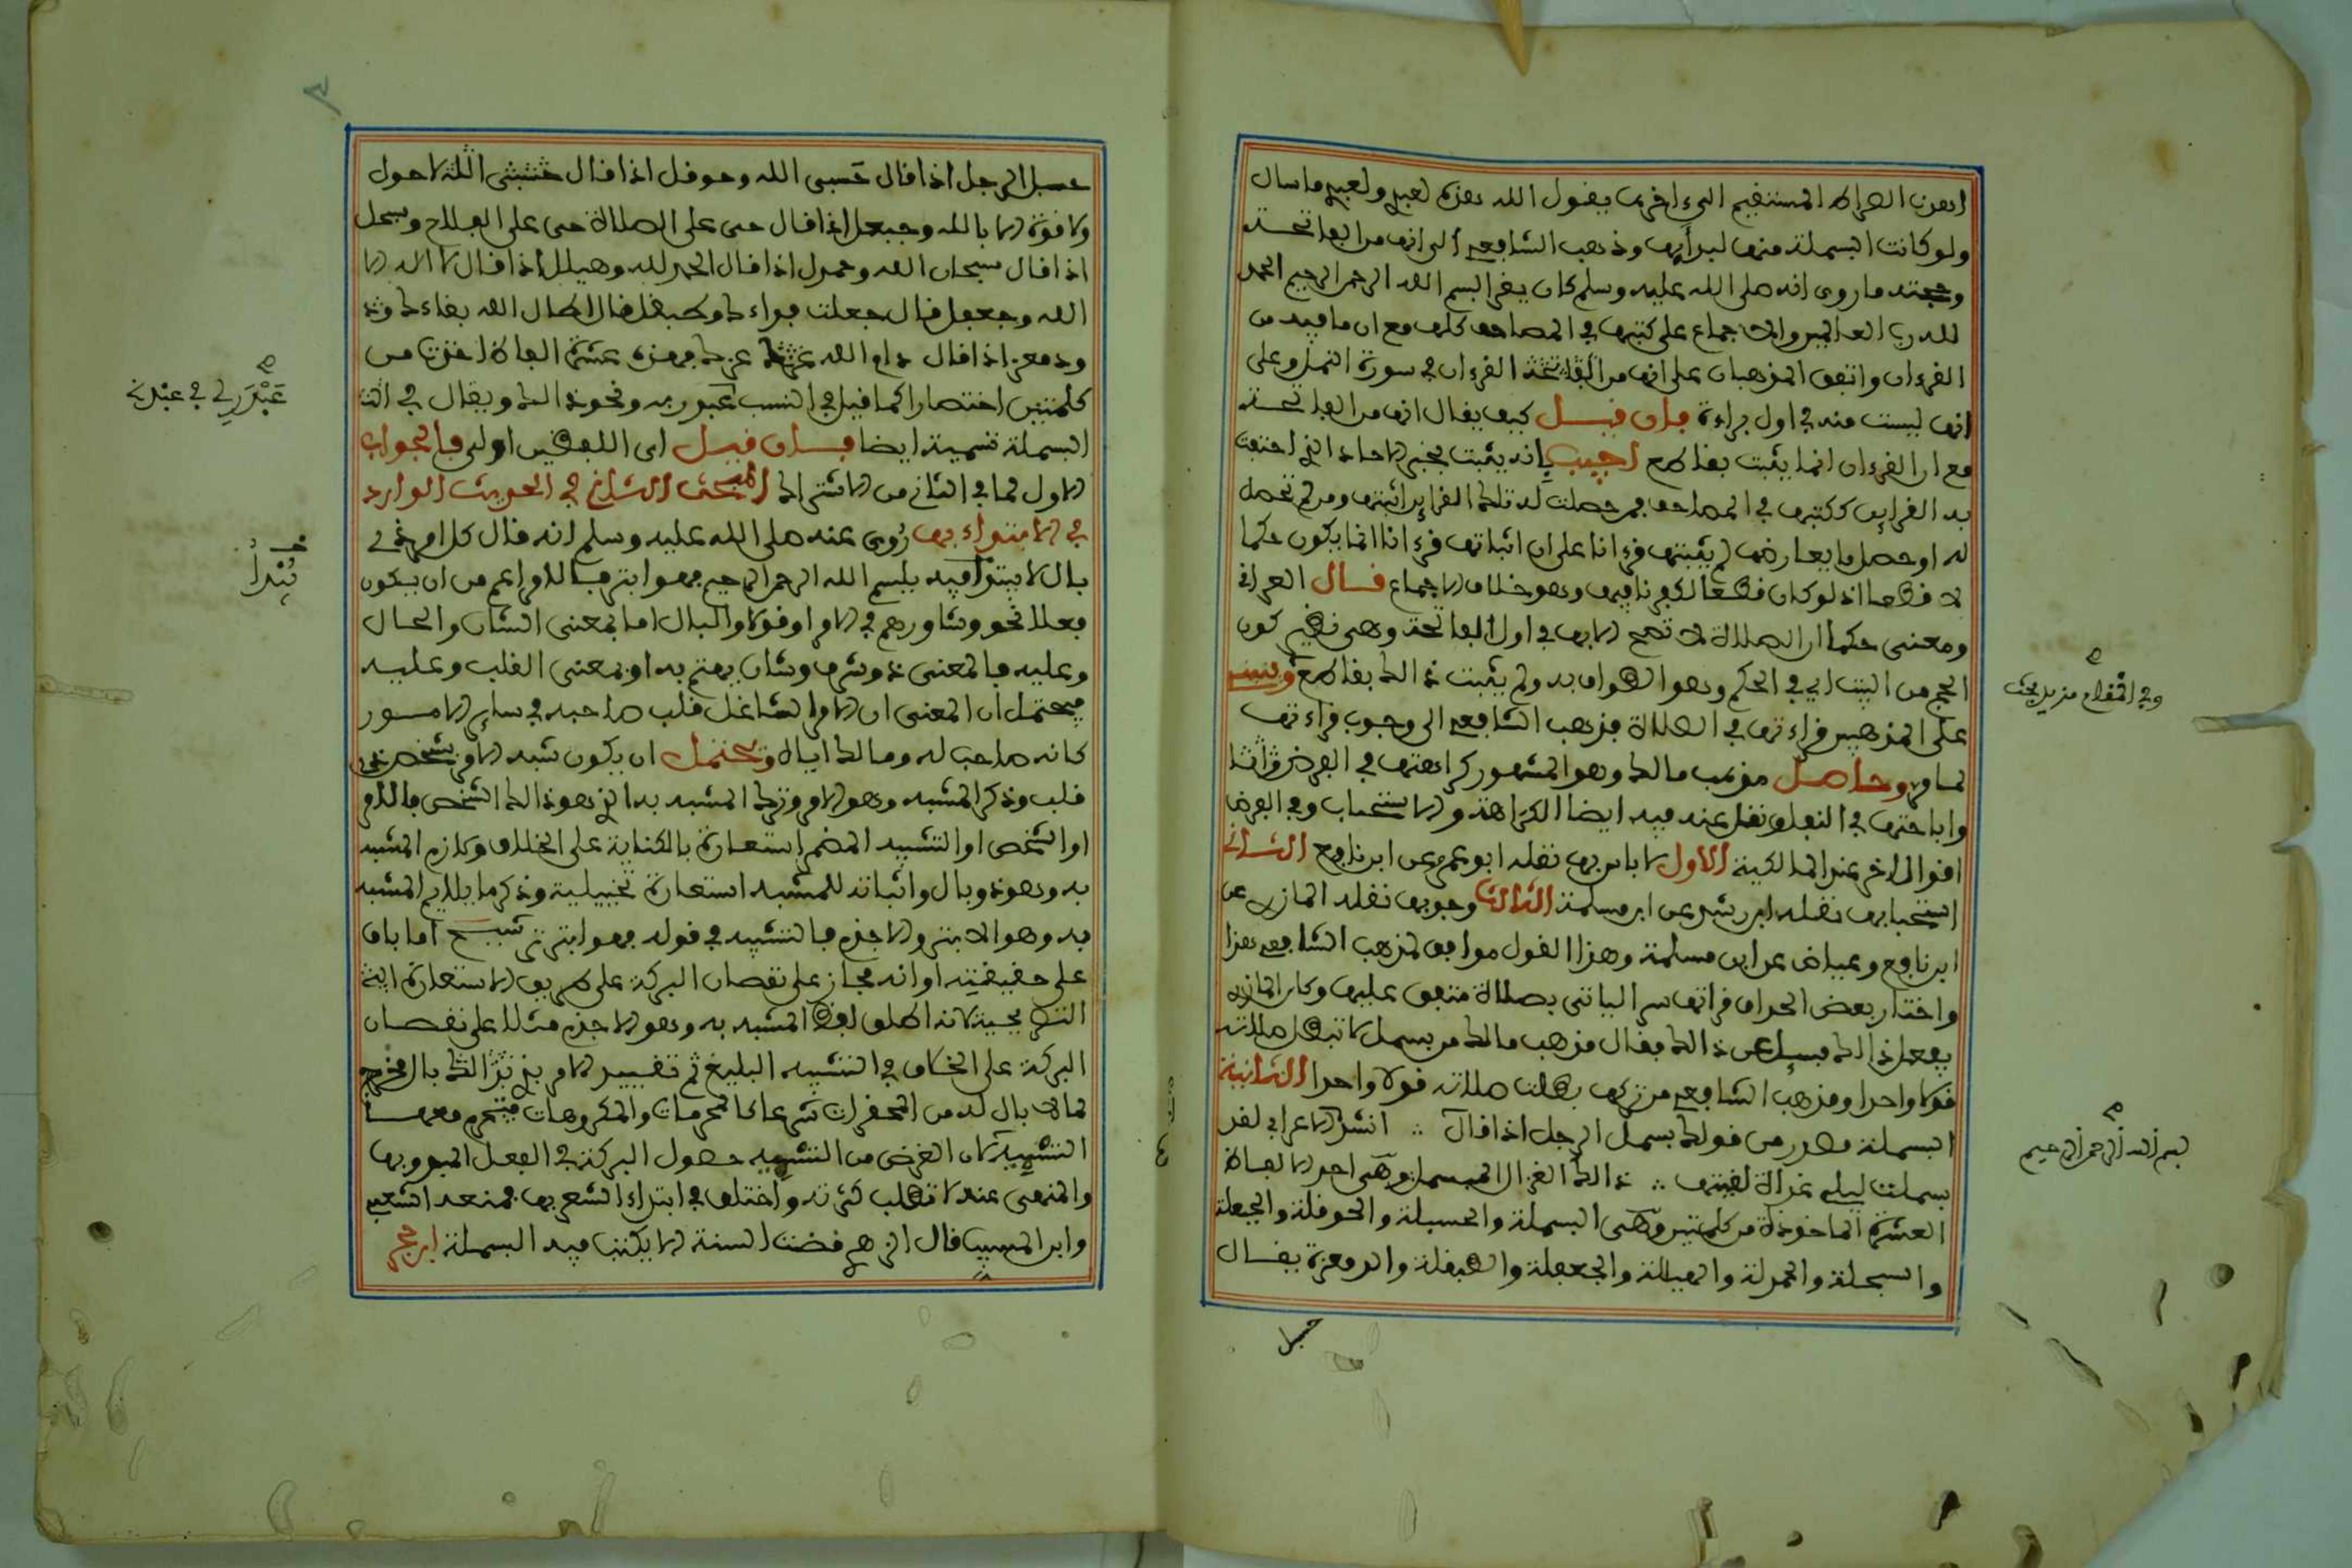 اهدنا الصراط المستقيم الى اخرها يقول الله فهذه لعبدي ولعبدي ما سال
ولو كانت البسملة منها لبدأ بها وذهب الشافعي الى انها من الفاتحة
وحجته ما روي انه صلى الله عليه وسلم كان يقرا بسم الله الرحمن الرحيم الحمد
لله رب العالمين والاجماع على كتبها في المصاحف كلها مع ان ما فيه من
القرءان واتفق المذهبان على انها من القرءان في سورة النمل وعلى
انها ليست منه في اول براءة فان قيل كيف يقال انها من الفاتحة
مع ان القرءان انما يثبت بقاطع اجيب بانه يثبت بخبر الاحاد الذي احتفت
به القراين ككتبها في المصاحف فمن حصلت له تلك القراين اثبتها ومن لم تحصل
له او حصل ما يعارضها لم يثبتها قرءانا على ان اثباتها قرءانا انما يكون حكما
لا قطعا اذ لو كان قطعا لكفر نافيها وهو خلاف الاجماع قال العراقي
ومعنى حكما ان الصلاة لا تصح الا بها في اول الفاتحة وهي نظير كون
الحجر من البيت اي في الحكم وهو الطواف به ولم يثبت ذلك بقاطع وينبني
على المذهبين قراءتها في الصلاة فذهب الشافعي الى وجوب قراءتها
لما مر وحاصل مذهب مالك وهو المشهور كراهتها في الفرض
واباحتها في النفل ونقل عنه فيه ايضا الكراهة والاستحباب وفي الفرض
اقوال اخر عند المالكية الاول لا باس بها نقله ابو عمر عن ابن نافع الثاني
استحبابها نقله ابن رشد عن ابن مسلمة الثالث وجوبها نقله المازري عن
ابن نافع وعياض عن ابن مسلمة وهذا القول موافق لمذهب الشافعي هذا
واختار بعض الحذاق قراتها سرا لياتي بصلاة متفق عليها وكان المازري
يفعل ذلك فسئل عن ذلك فقال مذهب مالك من بسمل لا تبطل صلاته
قولا واحدا ومذهب الشافعي من تركها بطلت صلاته قولا واحدا الثانية
البسملة مصدر من قولك بسمل الرجل اذا قال ∴ انشد الاعرابي لقد
بسملت ليلى غداة لقيتها ∴ ذلك الغزال المبسمل وهي احد الالفاظ
العشرة الماخوذة من كلمتين وهي البسملة والحسبلة والحوقلة والحيعلة
والسبحلة والحمدلة والهيللة والجعفلة والطبقلة والدمعزة يقال
حسبل
وفي الشفاء مزيد بحث
بسم الله الرحمن الرحيم
حسبل الرجل اذا قال حسبي الله وحوقل اذا قال لا حول
ولا قوة الا بالله وحيعل اذا قال حي على الصلاة حي على الفلاح وسبحل
اذا قال سبحان الله وحمدل اذا قال الحمد لله وهيلل اذا قال لا اله الا
الله وجعفل قال جعلت فداءك وطبقل قال اطال الله بقاءك
ودمعز اذا قال دام الله عزك فهذه عشرة الفاظ اخذت من
كلمتين اختصارا كما قيل في النسب عبدري ونحو ذلك ويقال في
البسملة تسمية ايضا فان قيل اي اللفظين اولى فالجواب
الاول لما في الثاني من الاشتراك المبحث الثاني في الحديث الوارد
في الابتداء بها روي عنه صلى الله عليه وسلم انه قال كل امر ذي
بال لا يبتدا فيه ببسم الله الرحمن الرحيم فهو ابتر فالامر اعم من ان يكون
فعلا نحو وشاورهم في الامر او قولا والبال اما بمعنى الشان والحال
وعليه فالمعنى ذو شرف وشان يهتم به او بمعنى القلب وعليه
فيحتمل ان المعنى ان الامر الشاغل قلب صاحبه في ساير الامور
كانه صاحب له ومالك اياه ويحتمل ان يكون شبه الامر بشخص ذي
قلب وذكر المشبه وهو الامر وترك المشبه به الذي هو ذلك الشخص فالامر
او الشخص او التشبيه المضمر استعارة بالكناية على الخلاف ولازم المشبه
به وهو ذو بال واثباته للمشبه استعارة تخييلية وذكر ما يلايم المشبه
به وهو الابتر والاجذم فالتشبيه في قوله فهو ابتر ترشيح اما باق
على حقيقته او انه مجاز على نقصان البركة على طريق الاستعارة
التصريحية لانه اطلق لفظ المشبه به وهو الاجذم مثلا على نقصان
البركة على الخلاف في التشبيه البليغ ثم تقييد الامر بذي البال مخرج
لما لا بال له من المحقرات شرعا كالمحرمات والمكروهات فتحرم معها
التسمية لان الغرض من التسمية حصول البركة في الفعل المبدو بها
والمنهي عنه لا تطلب كثرته واختلف في ابتداء الشعر بها فمنعه الشعبي
وابن المسيب قال الزهري مضت السنة الا يكتب فيه البسملة ابن حجر
عَبْدَرِي في عبد
يُبْدَأُ